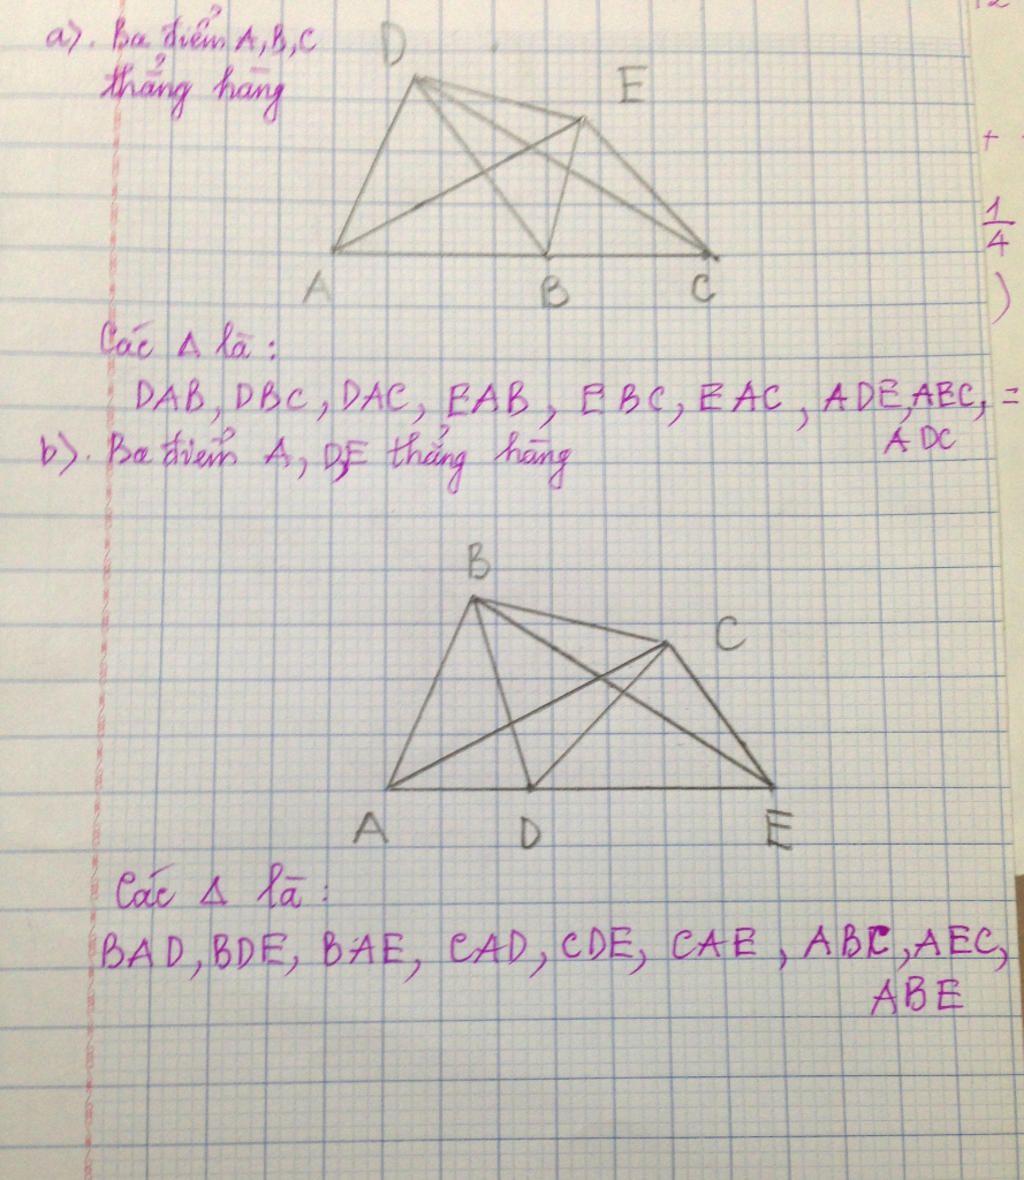 a). Ba điểm A, B, C
thẳng hàng
D
E
A B C
Các Δ là :
DAB, DBC, DAC, EAB, EBC, EAC, ADE, AEC, =
ADC
b). Ba điểm A, D, E thẳng hàng
B
C
A D E
Các Δ là :
BAD, BDE, BAE, CAD, CDE, CAE, ABC, AEC,
ABE
+
1
4
)